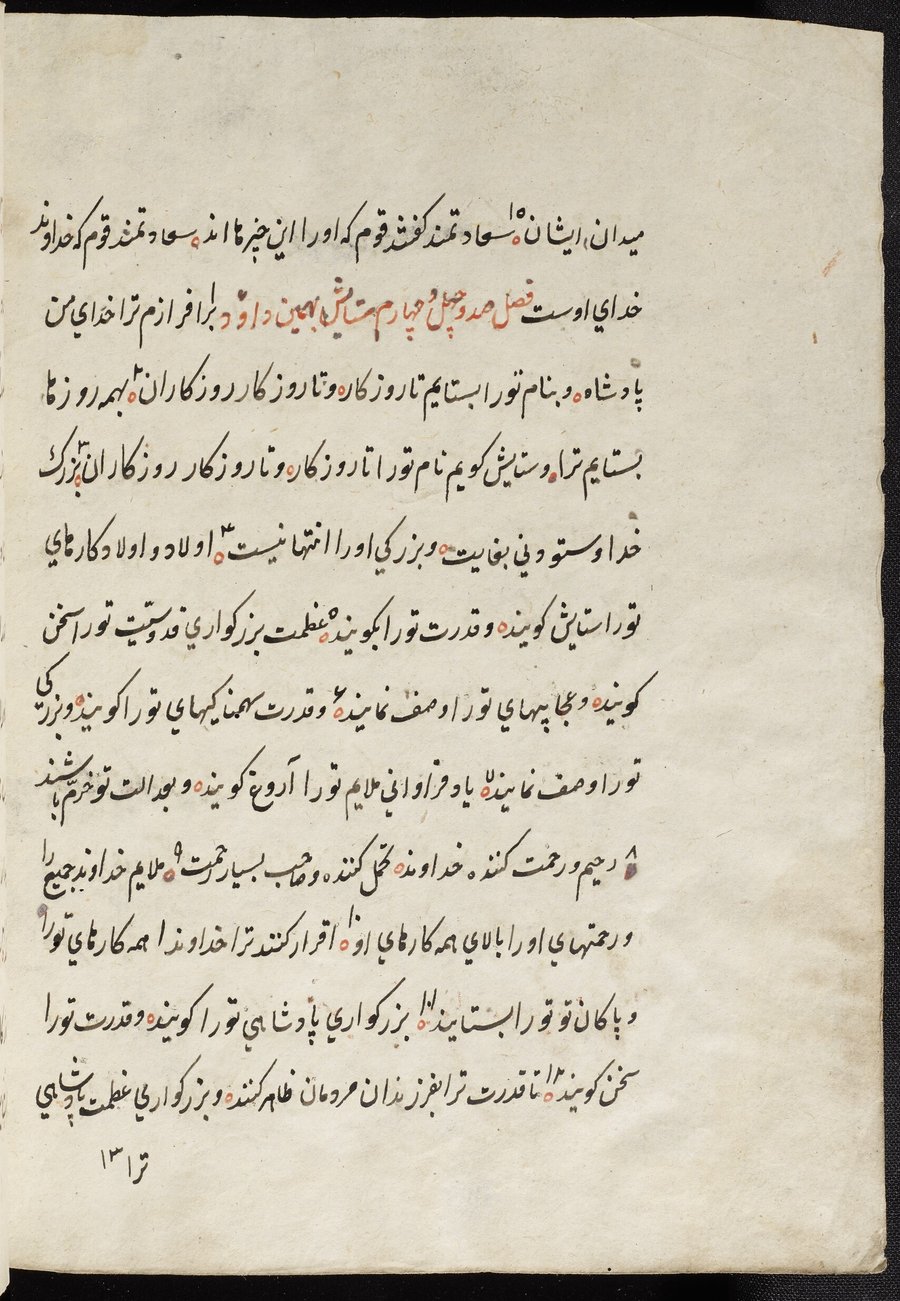 میدان ایشان ۱۵ سعادتمند کفتند قوم که اورا این چیزها اند سعادتمند قوم که خداوند
خداي اوست فصل صد و چهل و چهارم ستایش بهمین داوود ۱ برافرازم ترا خداي من
پادشاه و بنام تورا بستایم تا روزکار و تا روزکار روزکاران ۲ بهمه روزها
بستایم ترا و ستایش کویم نام تورا تا روزکار و تا روزکار روزکاران ۳ بزرك
خدا و ستودني بغایت و بزرکي اورا انتها نیست ۴ اولاد و اولاد کارهاي
تورا ستایش کویند و قدرت تورا بکویند ۵ عظمت بزرکواري قدوسیّت تورا سخن
کویند و عجایبهاي تورا وصف نمایند ۶ و قدرت سهمناکیهاي تورا کویند و بزرکي
تورا وصف نمایند ۷ یاد فراواني ملایم تورا آروغ کویند و بعدالت تو خرّم باشند
۸ رحیم و رحمت کننده خداوند تحمل کننده و صاحب بسیار رحمت ۹ ملایم خداوند جمیع را
و رحمتهاي اورا بالاي همه کارهاي او ۱۰ اقرار کنند ترا خداوندا همه کارهاي تورا
و پاکان تو تورا بستایند ۱۱ بزرکواري پادشاهي تورا کویند و قدرت تورا
سخن کویند ۱۲ تا قدرت ترا بفرزندان مردمان ظاهر کنند و بزرکواري عظمت پادشاهي
ترا ۱۳